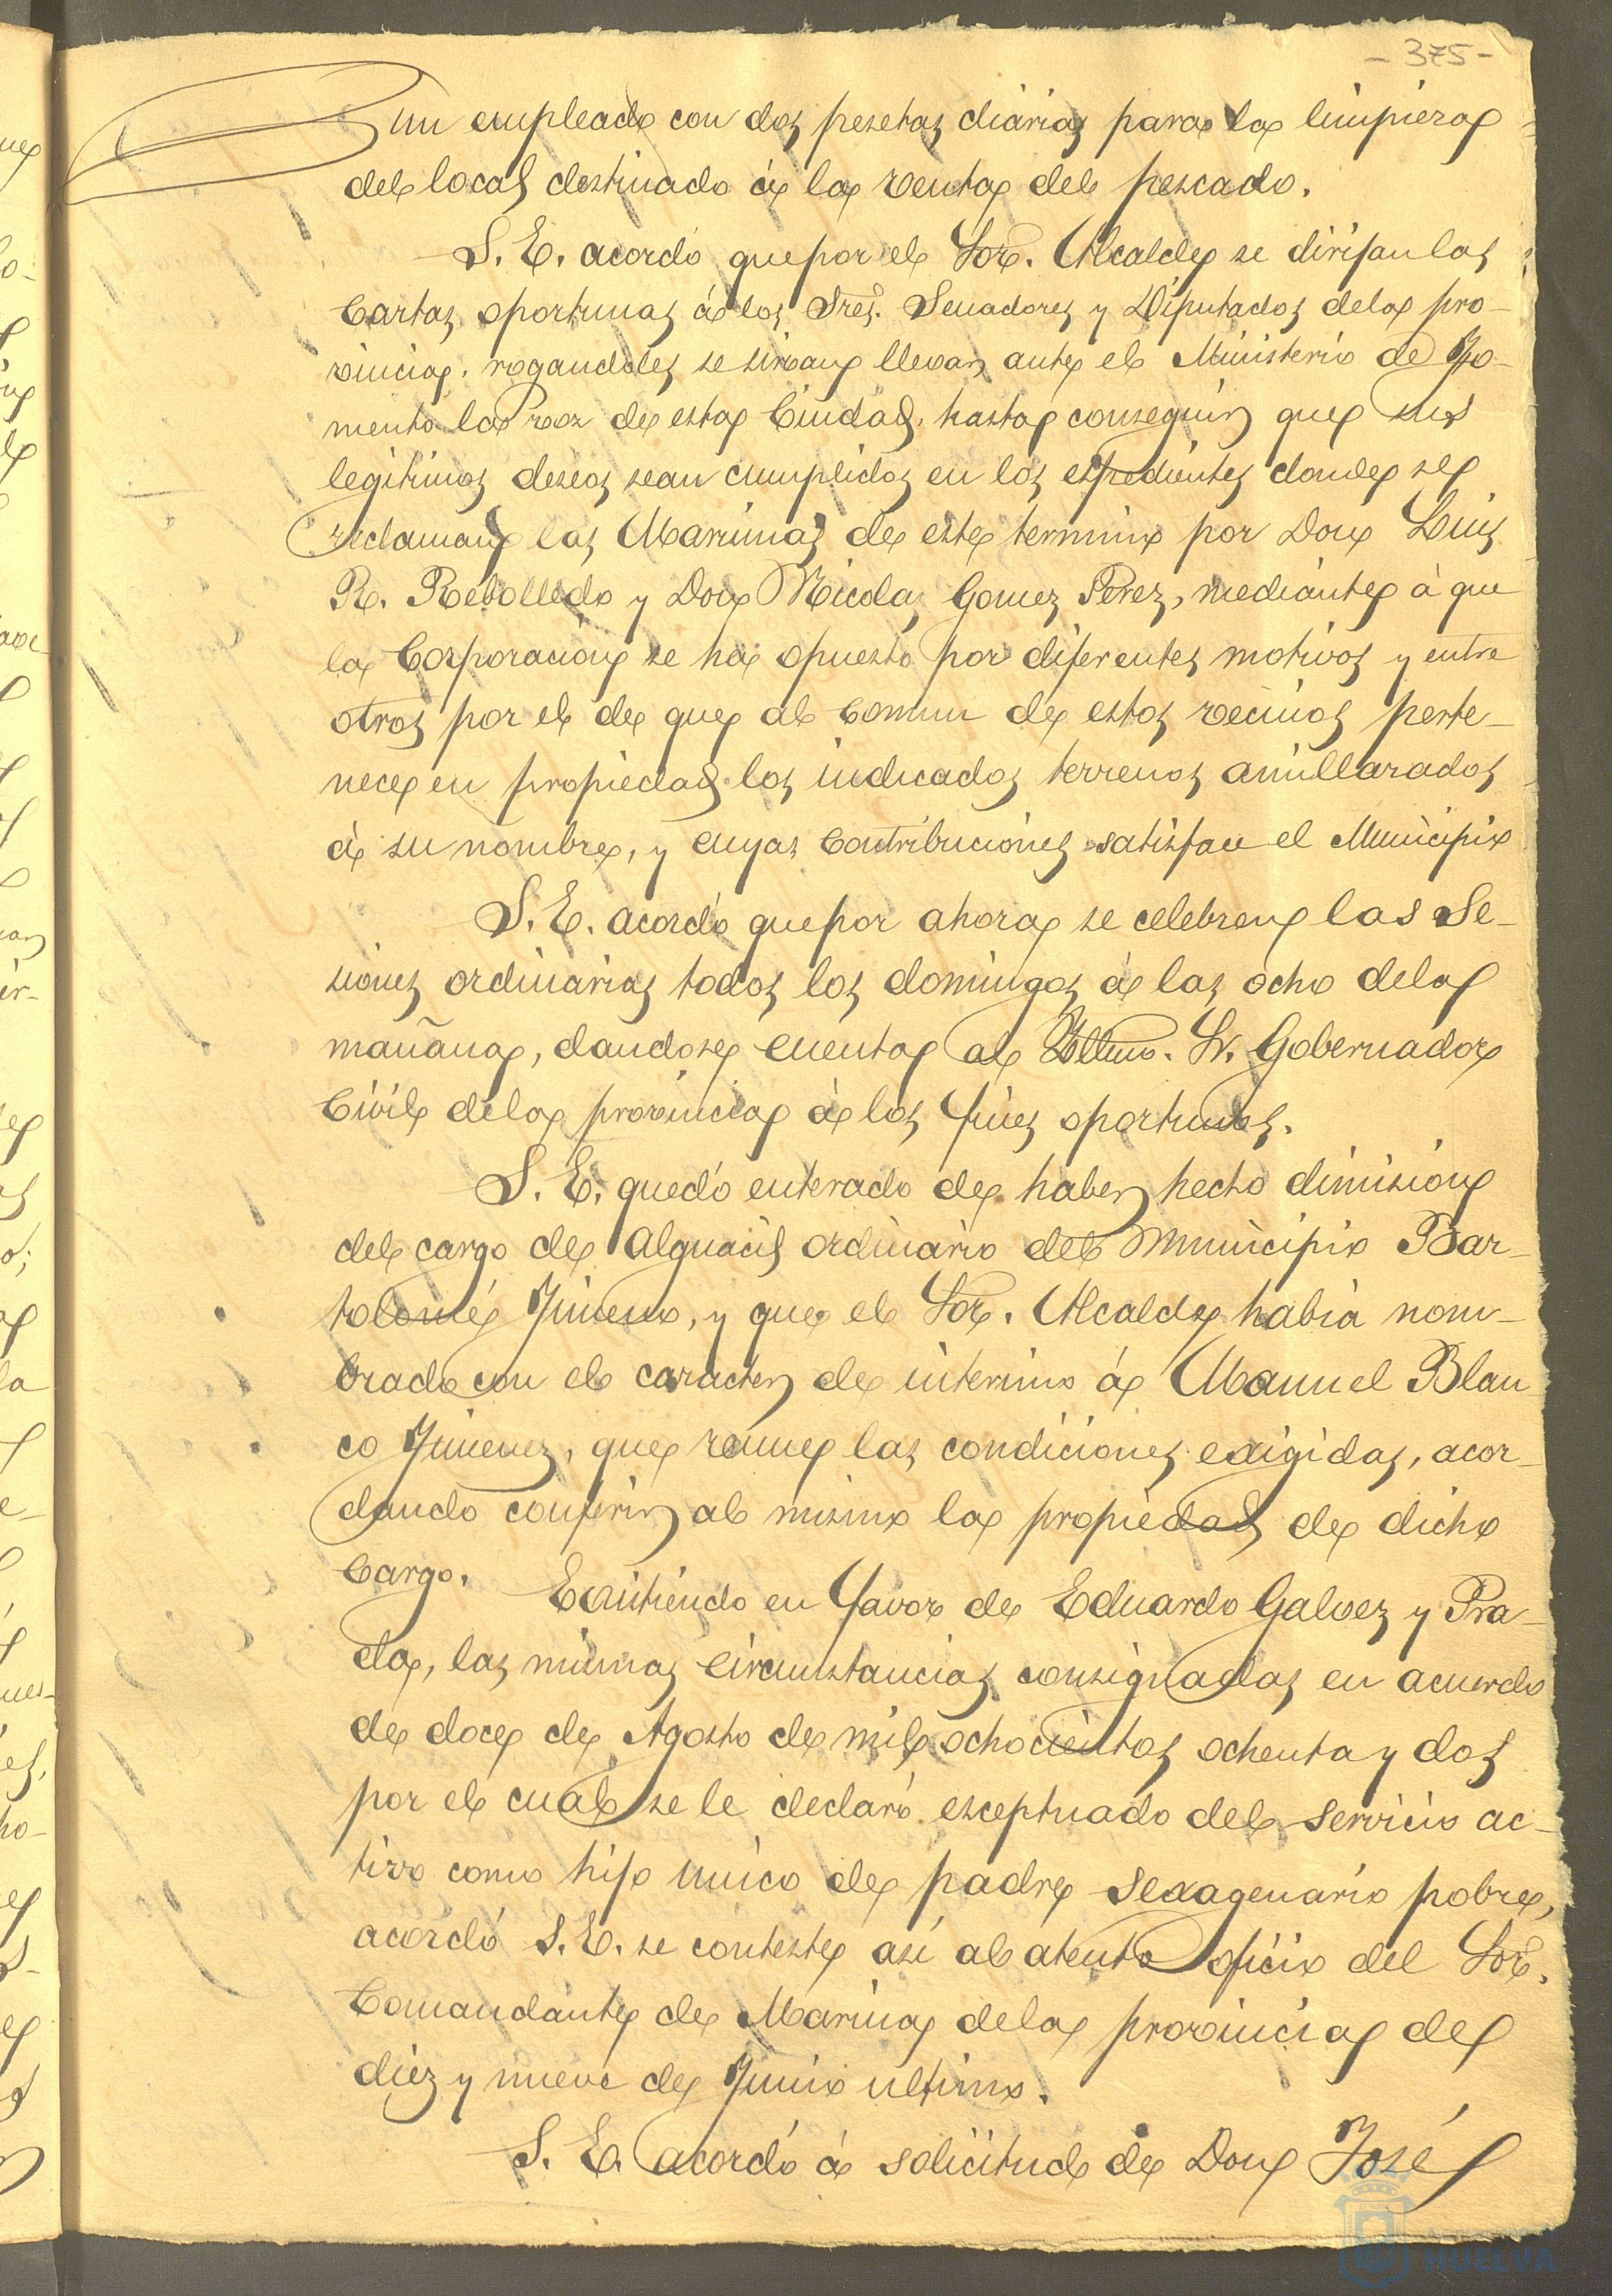 - 375 -
un empleado con dos pesetas diarias para la limpieza
del local destinado á la venta del pescado.
S. E. acordó que por el Sor. Alcalde se dirijan las
cartas oportunas á los Sres. Senadores y Diputados de la pro-
vincia, rogandoles se sirvan llevar ante el Ministerio de Fo-
mento la voz de esta Ciudad, hasta conseguir que sus
legitimos deseos sean cumplidos en los espedientes donde se
reclaman las Marismas de este termino por Don Luis
R. Rebolledo y Don Nicolas Gomez Perez, mediante á que
la Corporación se ha opuesto por diferentes motivos y entre
otros por el de que al comun de estos vecinos perte-
nece en propiedad los indicados terrenos amillarados
á su nombre, y cuyas contribuciones satisface el Municipio
S. E. acordó que por ahora se celebren las Se-
siones ordinarias todos los domingos á las ocho de la
mañana, dandose cuenta al Illmo. Sr. Gobernador
Civil de la provincia á los fines oportunos.
S. E. quedó enterado de haber hecho dimision
del cargo de Alguacil ordinario del Municipio Bar-
tolomé Jimeno, y que el Sor. Alcalde habia nom-
brado con el caracter de interino á Manuel Blan-
co Jimenez, que reune las condiciones exigidas, acor-
dando conferir al mismo la propiedad de dicho
cargo.
Existiendo en favor de Eduardo Galvez y Pra-
da, las mismas circunstancias consignadas en acuerdo
de doce de Agosto de mil ochocientos ochenta y dos
por el cual se le declaró esceptuado del servicio ac-
tivo como hijo único de padre sexagenario pobre,
acordó S. E. se conteste asi al atento oficio del Sor.
Comandante de Marina de la provincia de
diez y nueve de Junio ultimo.
S. E. acordó á solicitud de Don José
HUELVA